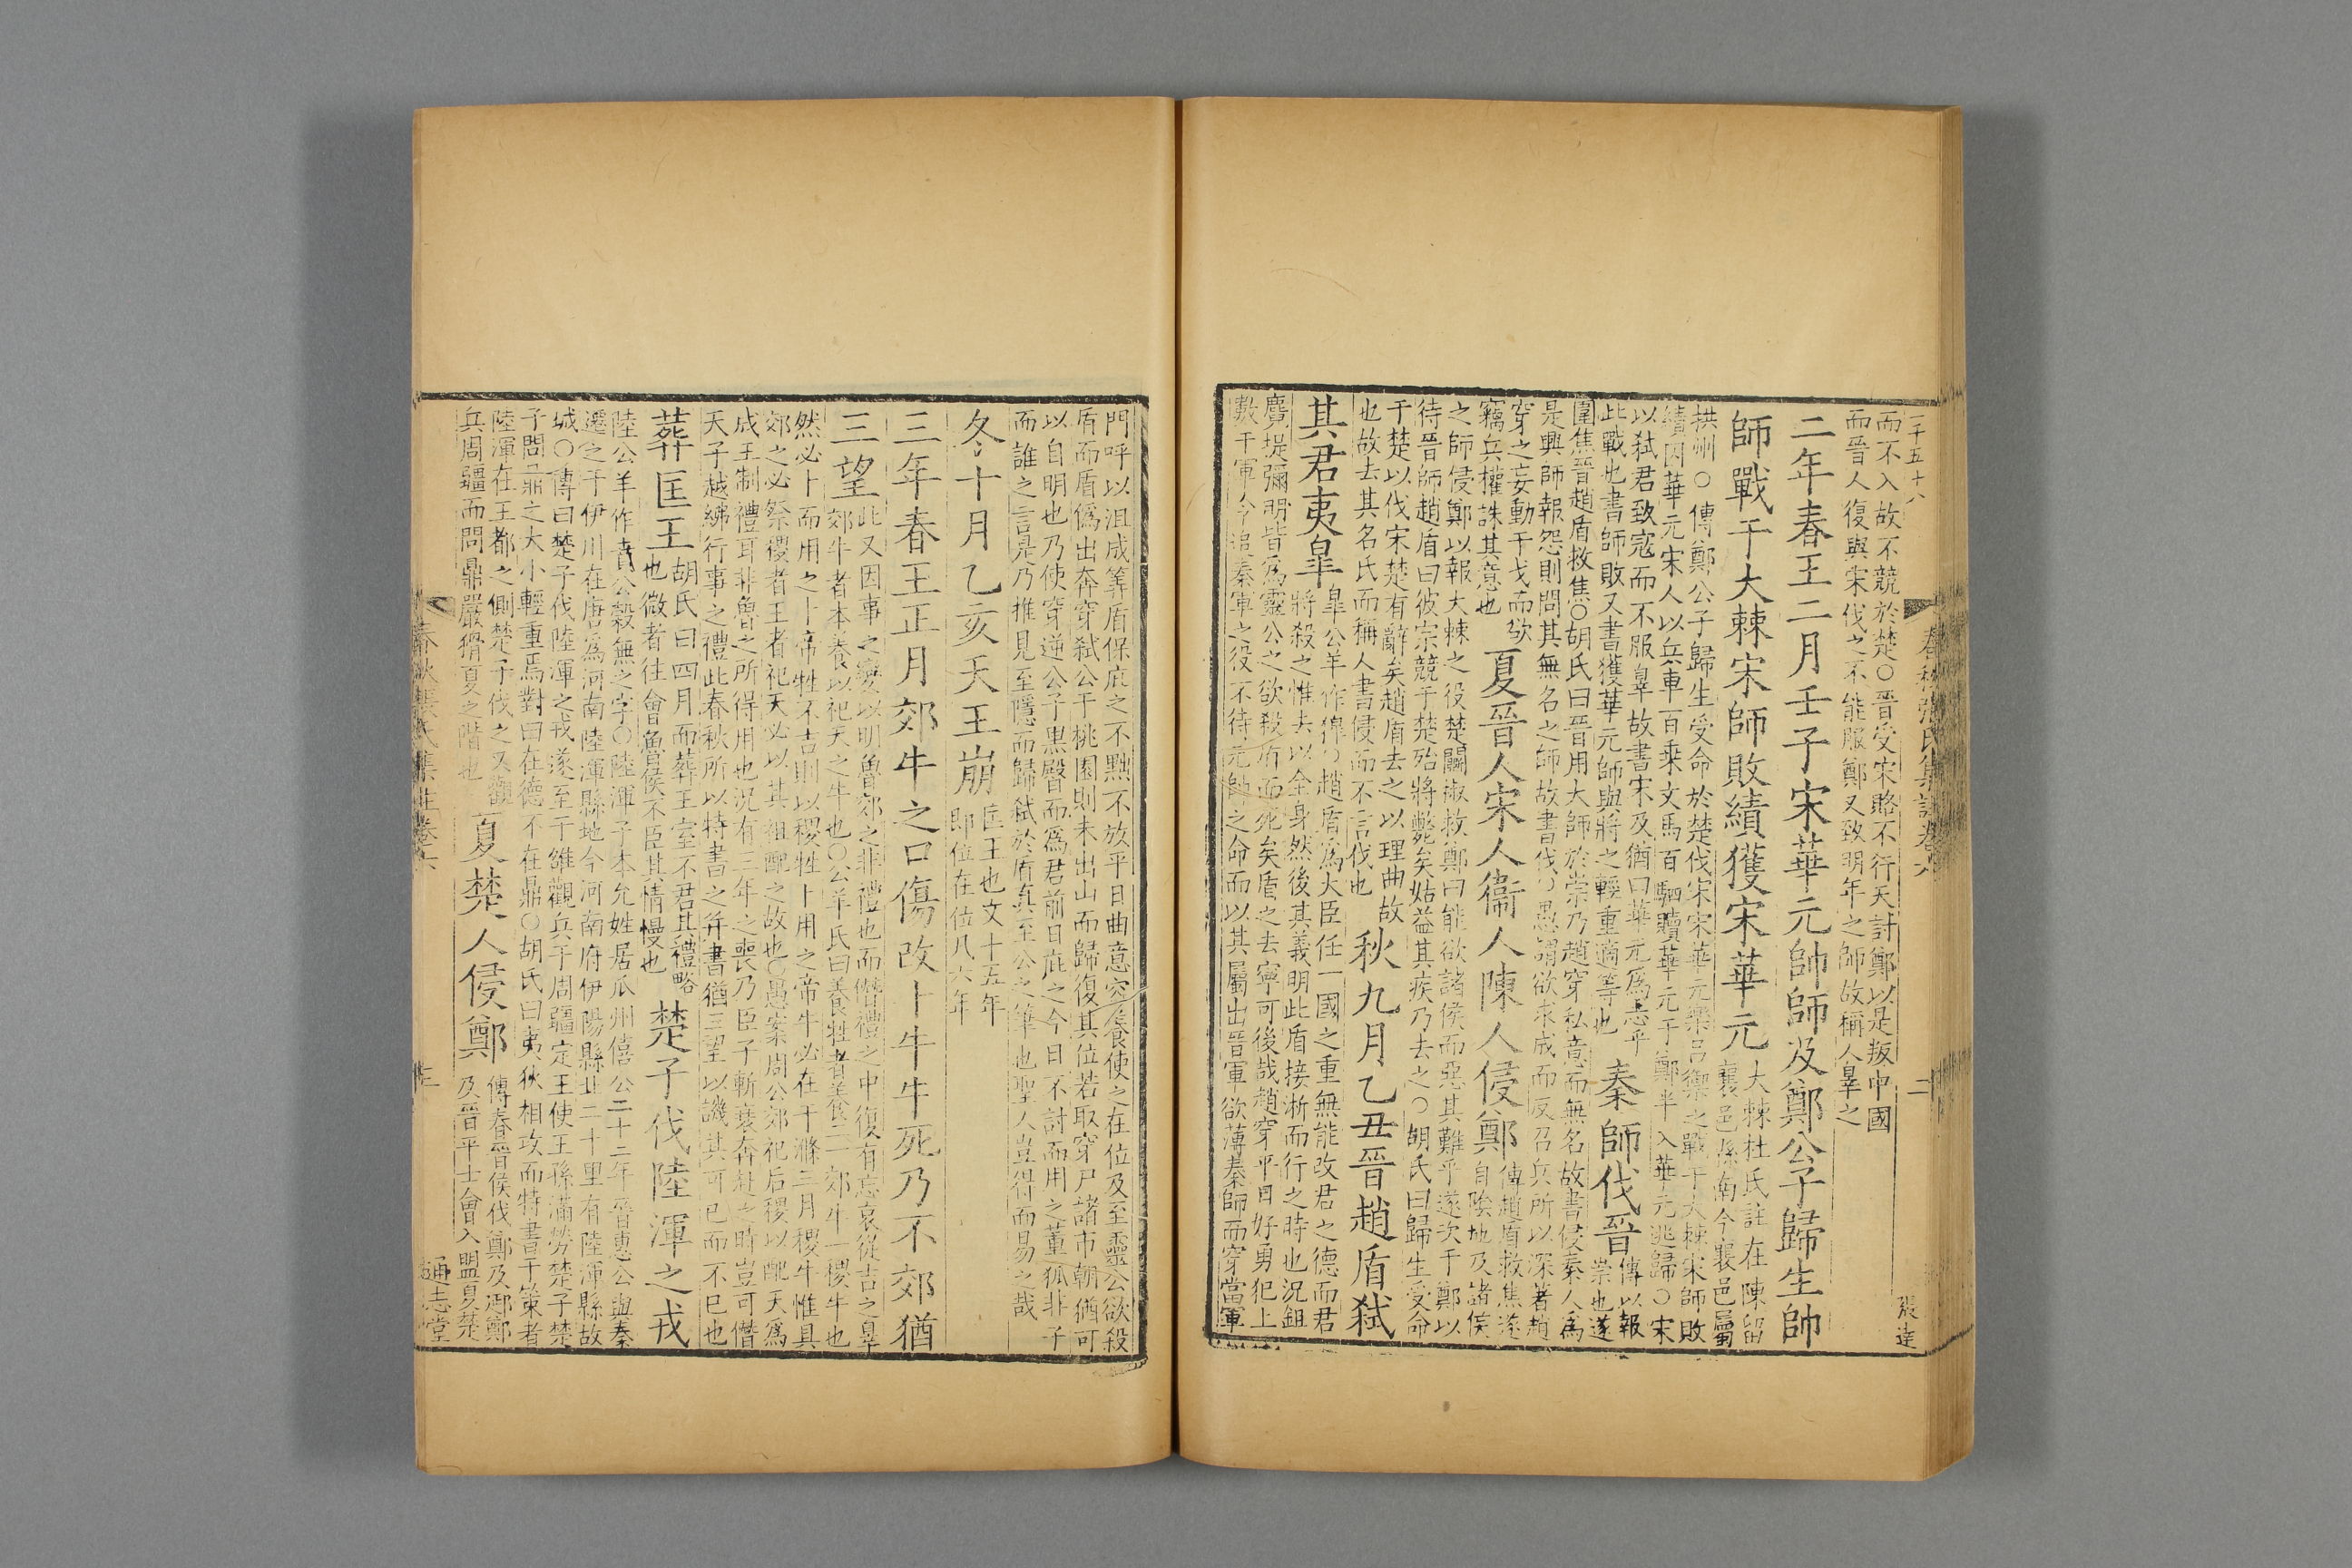 二千五十八
春秋張氏集註卷六
二
張達
而不入故不競於楚○晉受宋賂不行天討鄭以是叛中國
而晉人復與宋伐之不能服鄭又致明年之師故稱人辠之
二年春王二月壬子宋華元帥師及鄭公子歸生帥
師戰于大棘宋師敗績獲宋華元
大棘杜氏註在陳留
襄邑縣南今襄邑屬
拱州○傳鄭公子歸生受命於楚伐宋宋華元樂呂禦之戰于大棘宋師敗
績囚華元宋人以兵車百乘文馬百駟贖華元于鄭半入華元逃歸○宋
以弑君致寇而不服辠故書宋及猶曰華元為志乎
此戰也書師敗又書獲華元師與將之輕重適等也
秦師伐晉
傳以報
崇也遂
圍焦晉趙盾救焦○胡氏曰晉用大師於崇乃趙穿私意而無名故書侵秦人為
是興師報怨則問其無名之師故書伐○愚謂欲求成而反召兵所以深著趙
穿之妄動干戈而欲
竊兵權誅其意也
夏晉人宋人衞人陳人侵鄭
傳趙盾救焦遂
自陰地及諸侯
之師侵鄭以報大棘之役楚鬭淑救鄭曰能欲諸侯而惡其難乎遂次于鄭以
待晉師趙盾曰彼宗競于楚殆將斃矣姑益其疾乃去之○胡氏曰歸生受命
于楚以伐宋楚有辭矣趙盾去之以理曲故
也故去其名氏而稱人書侵而不言伐也
秋九月乙丑晉趙盾弑
其君夷皐
皐公羊作獋○趙盾為大臣任一國之重無能改君之德而君
將殺之惟去以全身然後其義明此盾接淅而行之時也況鉏
麑提彌明皆為靈公之欲殺盾而死矣盾之去寧可後哉趙穿平日好勇犯上
數干軍令追秦軍之役不待元帥之命而以其屬出晉軍欲薄秦師而穿當軍
門呼以沮成等盾保庇之不黜不放平日曲意容養使之在位及至靈公欲殺
盾而盾僞出奔穿弑公于桃園則未出山而歸復其位若取穿尸諸市朝猶可
以自明也乃使穿逆公子黑臀而為君前日庇之今日不討而用之董狐非子
而誰之言是乃推見至隱而歸弑於盾真至公之筆也聖人豈得而易之哉
冬十月乙亥天王崩
匡王也文十五年
即位在位八六年
三年春王正月郊牛之口傷改卜牛牛死乃不郊猶
三望
此又因事之變以明魯郊之非禮也而僭禮之中復有忘哀從吉之辠
郊牛者本養以祀天之牛也○公羊氏曰養牲者養二郊牛一稷牛也
然必卜而用之卜帝牲不吉則以稷牲卜用之帝牛必在于滌三月稷牛惟具
郊之必祭稷者王者祀天必以其祖配之故也○愚案周公郊祀后稷以配天為
成王制禮耳非魯之所得用也況有三年之喪乃臣子斬衰奔赴之時豈可僭
天子越紼行事之禮此春秋所以特書之并書猶三望以譏其可已而不已也
葬匡王
胡氏曰四月而葬王室不君其禮略
也微者往會魯侯不臣其情慢也
楚子伐陸渾之戎
陸公羊作賁公穀無之字○陸渾子本允姓居瓜州僖公二十二年晉惠公與秦
遷之于伊川在唐為河南陸渾縣地今河南府伊陽縣北二十里有陸渾縣故
城○傳曰楚子伐陸渾之戎遂至于雒觀兵于周疆定王使王孫滿勞楚子楚
子問鼎之大小輕重焉對曰在德不在鼎○胡氏曰夷狄相攻而特書于策者
陸渾在王都之側楚子伐之又觀
兵周疆而問鼎嚴猾夏之階也
夏楚人侵鄭
傳春晉侯伐鄭及郔鄭
及晉平士會入盟夏楚
春秋張氏集註卷六
通志堂